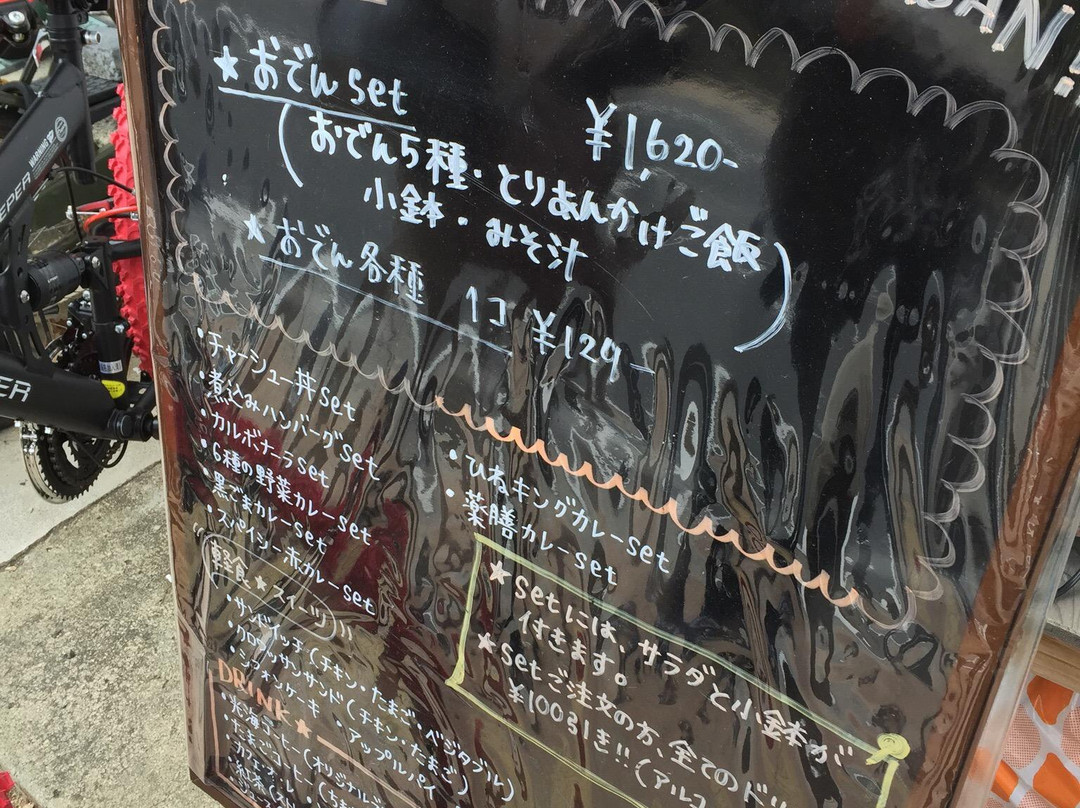 ★おでんset
¥1,620-
(おでん5種・とりあんかけご飯
小鉢・みそ汁)
★おでん各種 1コ ¥129-
・チャーシュー丼set
・煮込みハンバーグset
・カルボナーラset
・6種の野菜カレーset
・黒ごまカレーset
・スパイシー赤カレーset
・ひねキングカレーset
・薬膳カレーset
軽食★スイーツ
・サンドイッチ(チキン・たまご・ベジタブル)
・クロワッサンサンド(チキン・たまご)
・シフォンケーキ ・アップルパイ
★setには、サラダと小鉢が
付きます。
★setご注文の方、全てのドリ
¥100引き!!(アルコ
DRINK★
WARNING
EEPER
PER